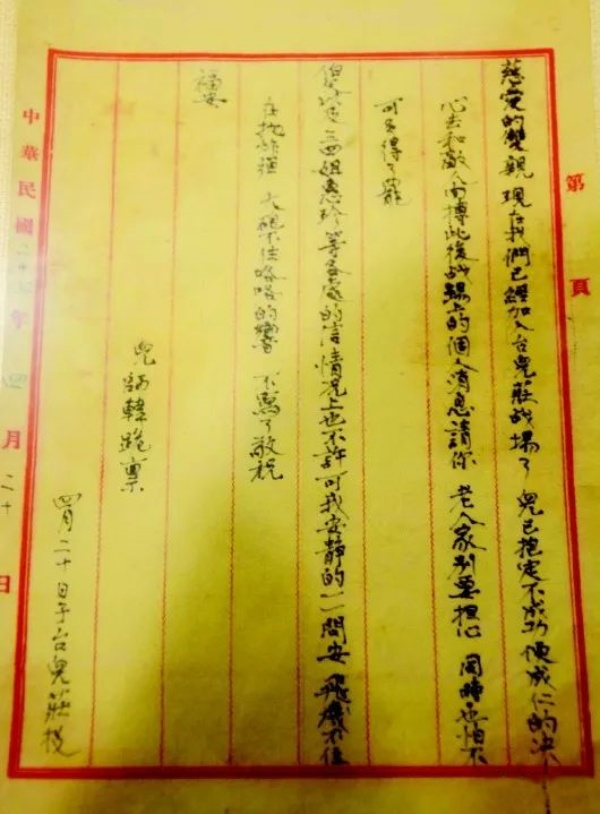 第 頁
慈愛的雙親 現在我們已經加入台兒莊战場了 兒已抱定不成功便成仁的决
心去和敵人肉搏此後战場上的個人消息請你 老人家别要担心 同時也怕不
可多得了罷
三四姐惠玲等各處的信情况上也不許可我安靜的一一問安 飛機不住
在抛炸彈 大砲不住咯咯的響 不寫了敬祝
福安
兒 韓跪禀
四月二十日于台兒莊役
中華民國二十七年四月二十日